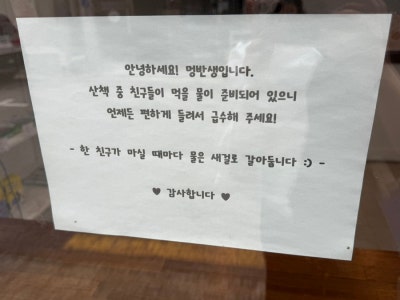 안녕하세요! 멍반생입니다.
산책 중 친구들이 먹을 물이 준비되어 있으니
언제든 편하게 들려서 급수해 주세요!
- 한 친구가 마실 때마다 물은 새걸로 갈아둡니다 :) -
♥ 감사합니다 ♥